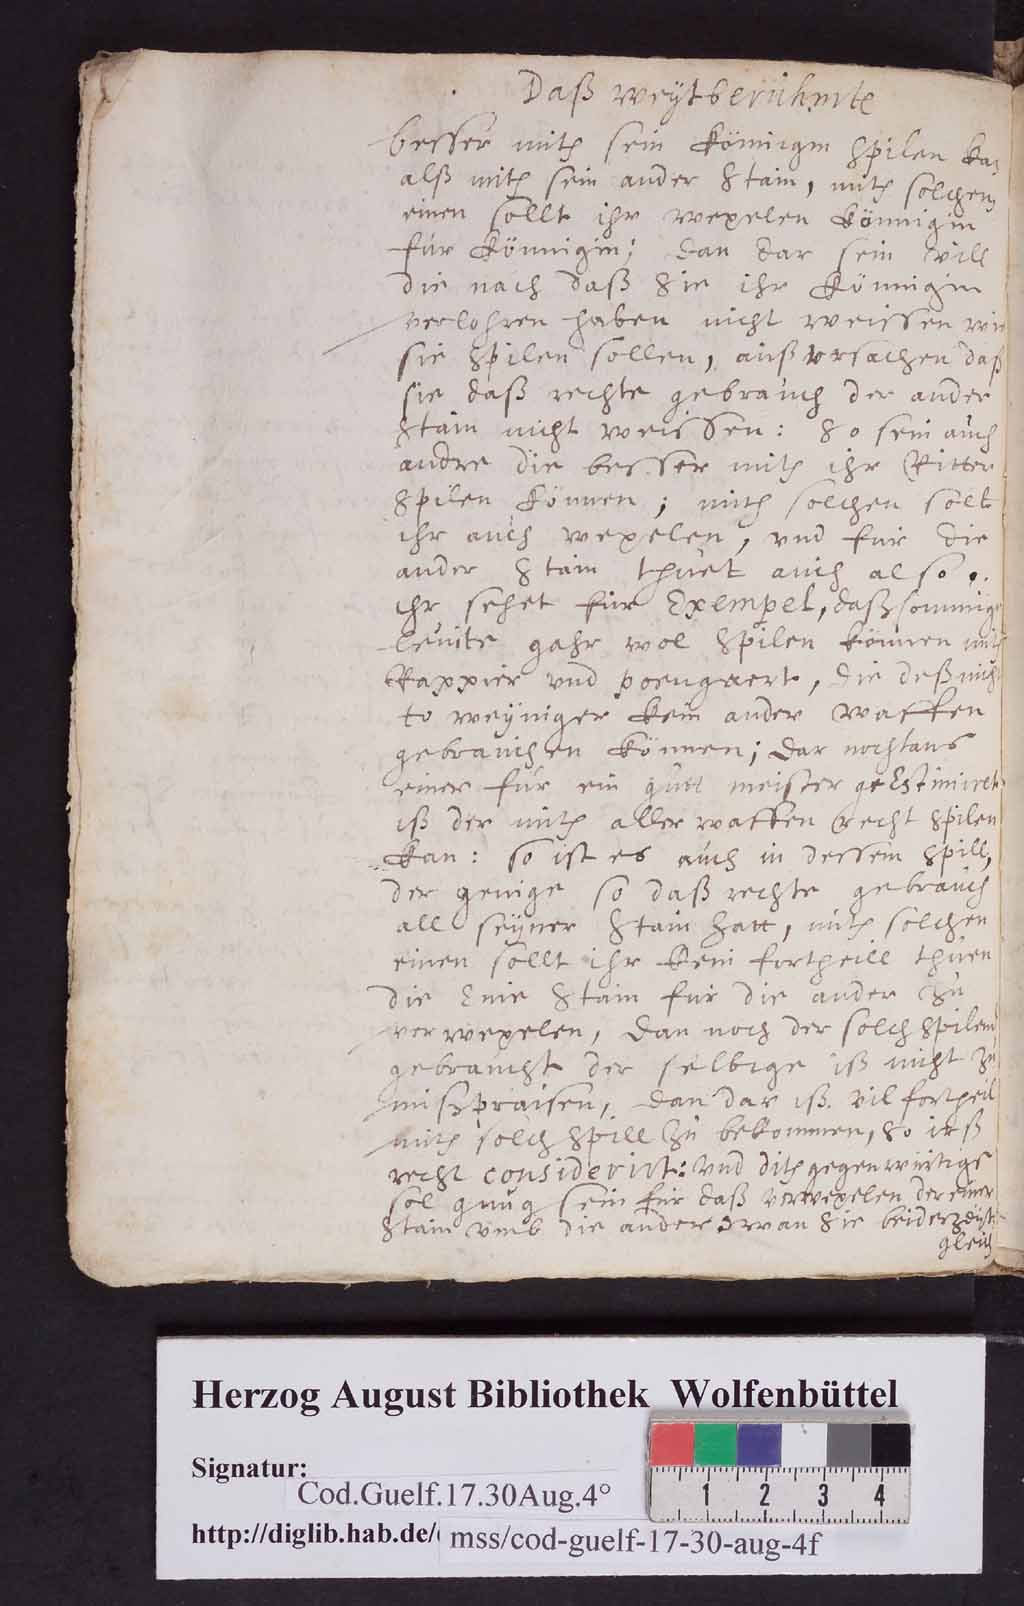 Daß weÿtberühmte
besser mith sein Könnigin spilen kan
alß mith sein ander stain, mith solchen
einen sollt ihr wexelen Könnigin
für Könnigin; dan dar sein vill
die nach daß sie ihr Könnigin
verlohren haben nicht weissen wie
sie spilen sollen, auß vrsachen daß
sie daß rechte gebrauch der ander
stain nicht weissen: so sein auch
andre die besser mith ihr Ritter
spilen können; mith solchen solt
ihr auch wexelen, vnd für die
ander stain thuet auch also.
ihr sehet für Exempel, daß sommige
leuite gahr wol spilen können mith
Rappier vnd poengaert, die deß nich
to weÿniger kein ander waffen
gebrauchen können; dar nochtans
einer für ein gutt meister geEstimirt
iß der mith aller waffen recht spilen
kan: so ist es auch in dessem spill,
der genige so daß rechte gebrauch
all seÿner stain hatt, mith solchen
einen sollt ihr kein fortheill thuen
die Enie stain für die ander zu
verwexelen, dan noch der solch spilend
gebraucht der selbige iß nicht zu
mißpraisen, dan dar iß vil fortheil
mith solch spill zu bekommen, so irß
recht considerirt: vnd dith gegenwirtigs
sol gnug sein für daß verwexelen der einer
stain vmb die ander wan sie beiderzeits
gleich
Herzog August Bibliothek Wolfenbüttel
Signatur:
Cod.Guelf.17.30Aug.4°
http://diglib.hab.de/
mss/cod-guelf-17-30-aug-4f
1 2 3 4